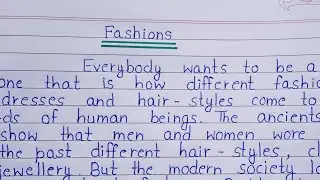 Fashions
Everybody wants to be a
one that is how different fashio
dresses and hair-styles come to
ds of human beings. The ancients
show that men and women wore
the past different hair-styles, cl
jewellery. But the modern society lo